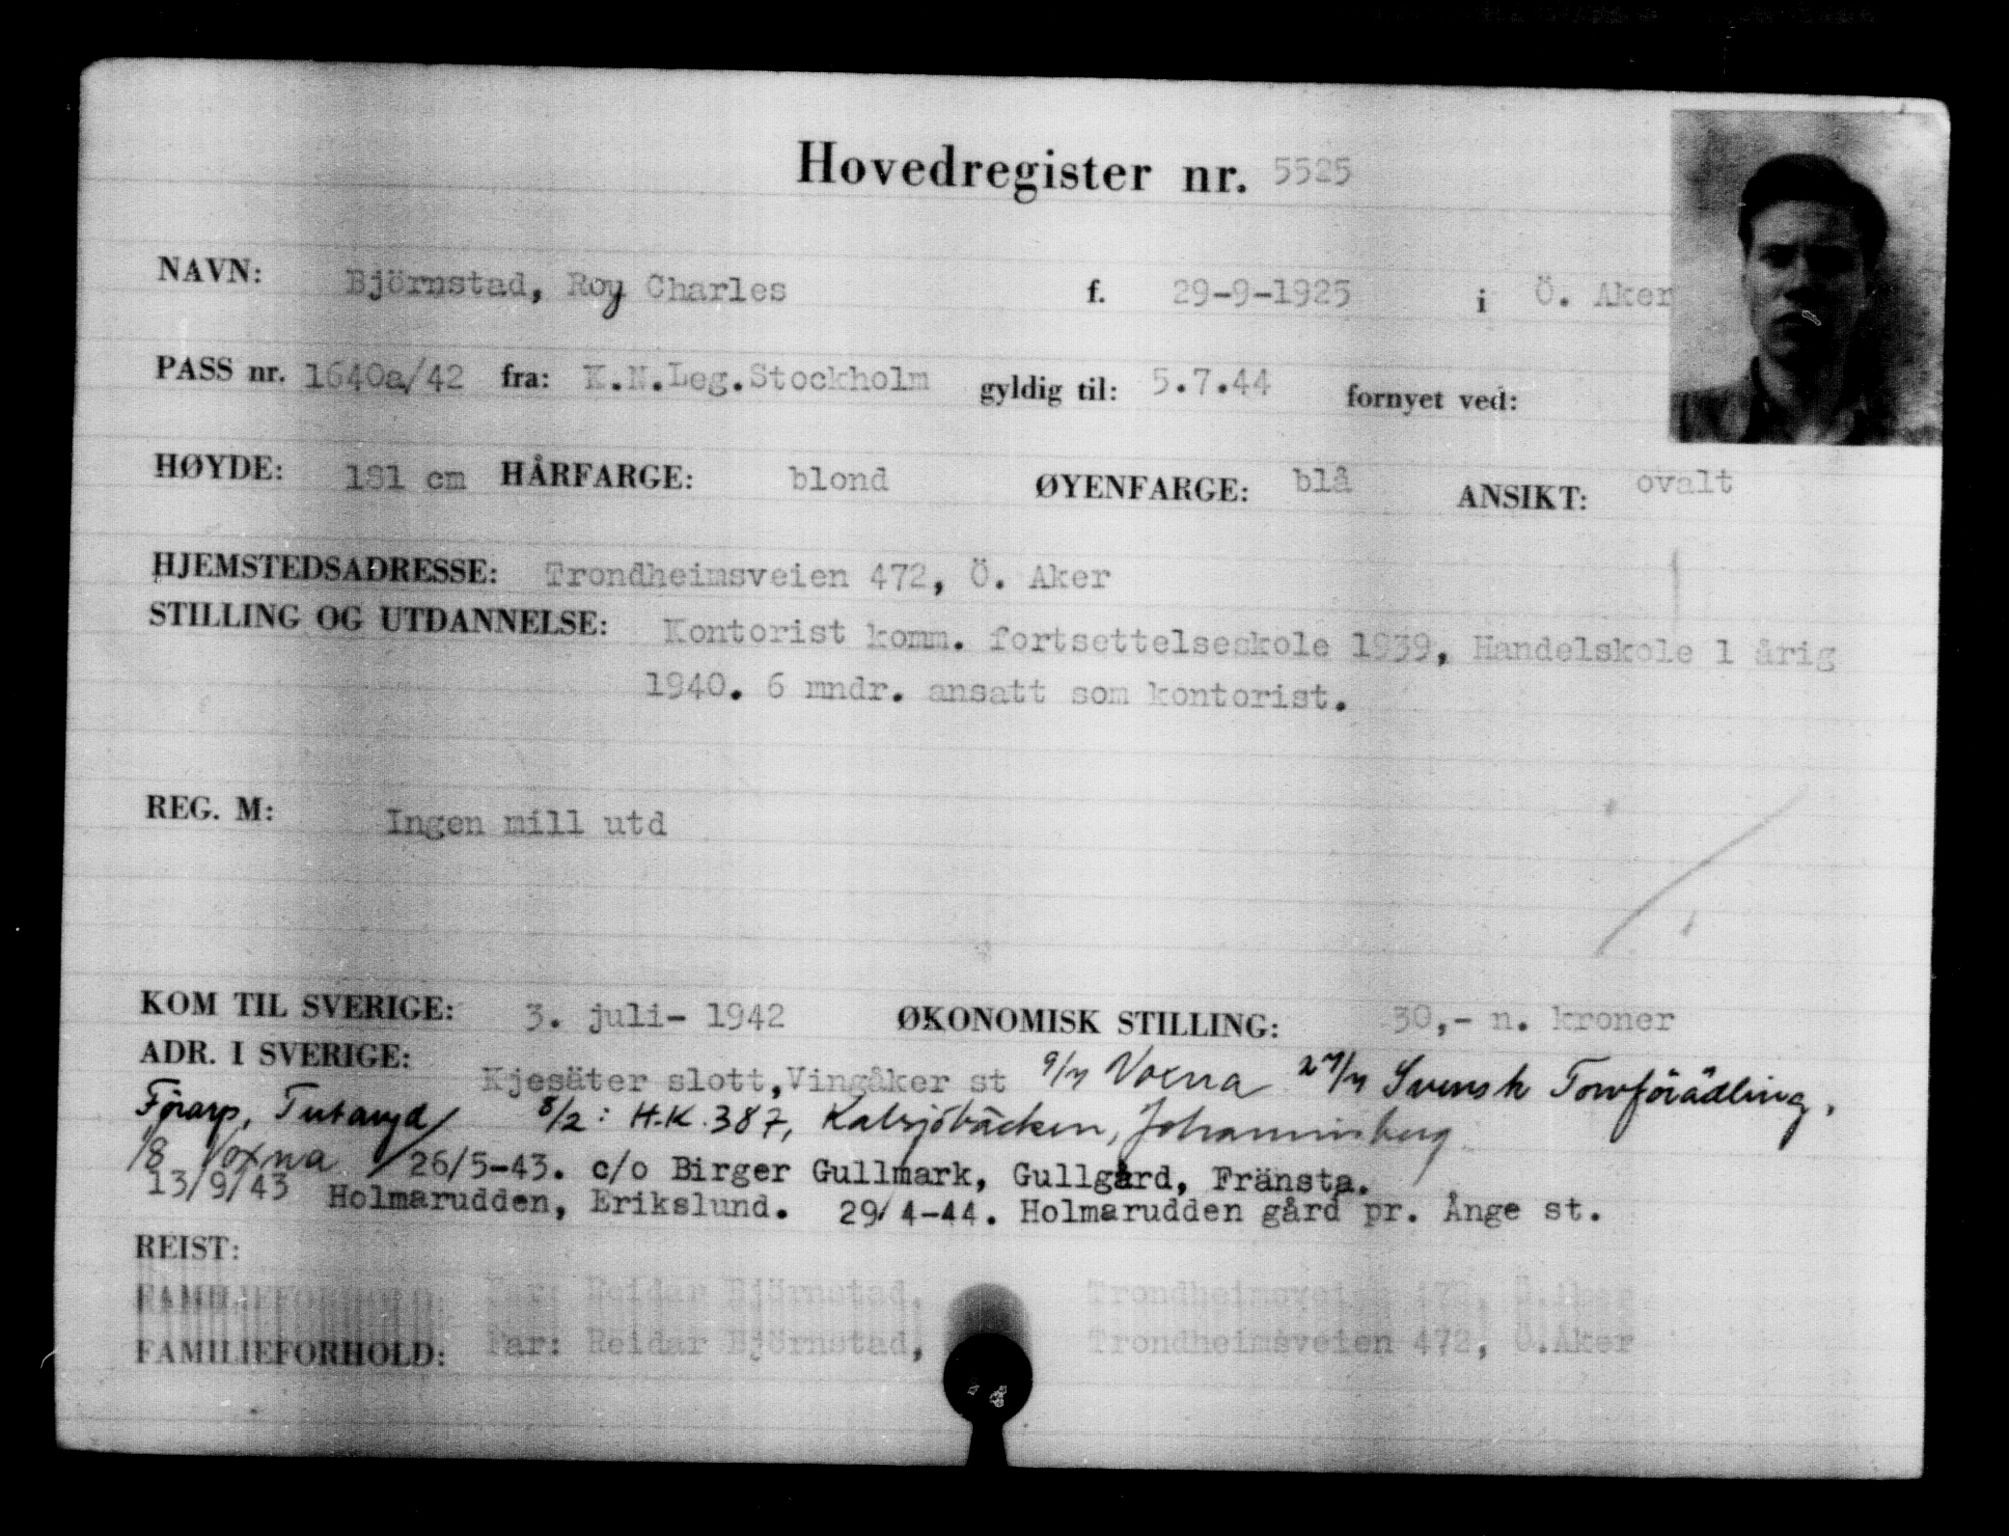 Hovedregister nr. 5525
NAVN: Björnstad, Roy Charles f. 29-9-1925 i Ö. Aker
PASS nr. 1640a/42 fra: K.N.Leg.Stockholm gyldig til: 5.7.44 fornyet ved:
HØYDE: 181 cm HÅRFARGE: blond ØYENFARGE: blå ANSIKT: ovalt
HJEMSTEDSADRESSE: Trondheimsveien 472, Ö. Aker
STILLING OG UTDANNELSE: Kontorist komm. fortsettelseskole 1939, Handelskole 1 årig
1940. 6 mndr. ansatt som kontorist.
REG. M: Ingen mill utd
KOM TIL SVERIGE: 3. juli- 1942 ØKONOMISK STILLING: 30,- n. kroner
ADR. I SVERIGE: Kjesäter slott,Vingåker st 9/7 Voxna 27/7 Svensk Torvförädling,
Förarp, Tutaryd 8/2: H.K. 387, Kalsjöbäcken, Johannisberg
/8 Voxna 26/5-43. c/o Birger Gullmark, Gullgård, Fränsta.
13/9/43 Holmarudden, Erikslund. 29/4-44. Holmarudden gård pr. Ånge st.
REIST:
FAMILIEFORHOLD: Far: Reidar Björnstad, Trondheimsveien 472, Ö.Aker
FAMILIEFORHOLD: Far: Reidar Björnstad, Trondheimsveien 472, Ö.Aker